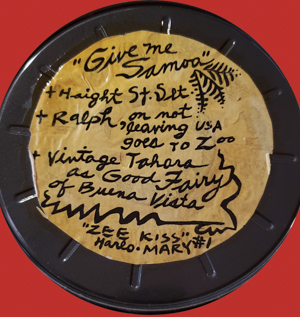 "Give me
Samoa"
+ Haight St. Set
+ Ralph, on not
leaving USA
goes to Zoo
+ Vintage Tahara
as Good Fairy
of Buena Vista
"ZEE KISS"
Harlo • MARY #1